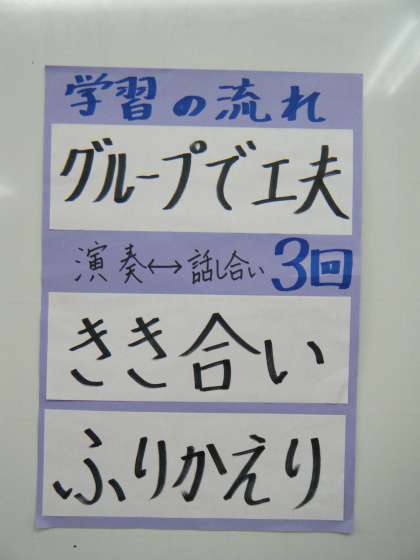 学習の流れ
グループで工夫
演奏↔話し合い 3回
きき合い
ふりかえり